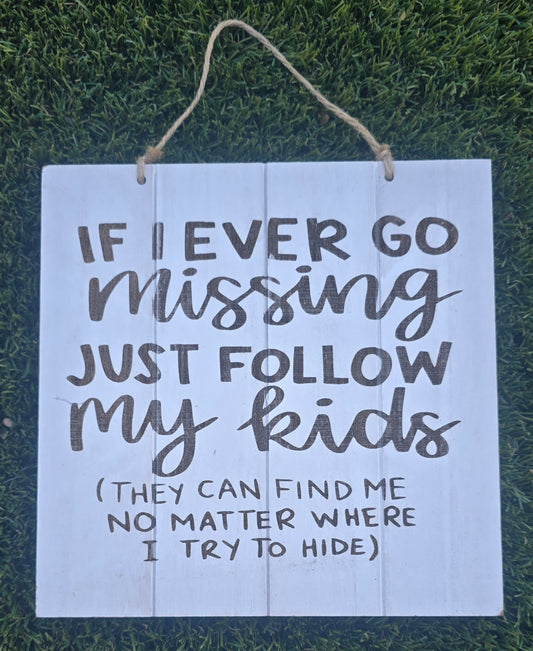 IF I EVER GO
missing
JUST FOLLOW
my kids
(THEY CAN FIND ME
NO MATTER WHERE
I TRY TO HIDE)